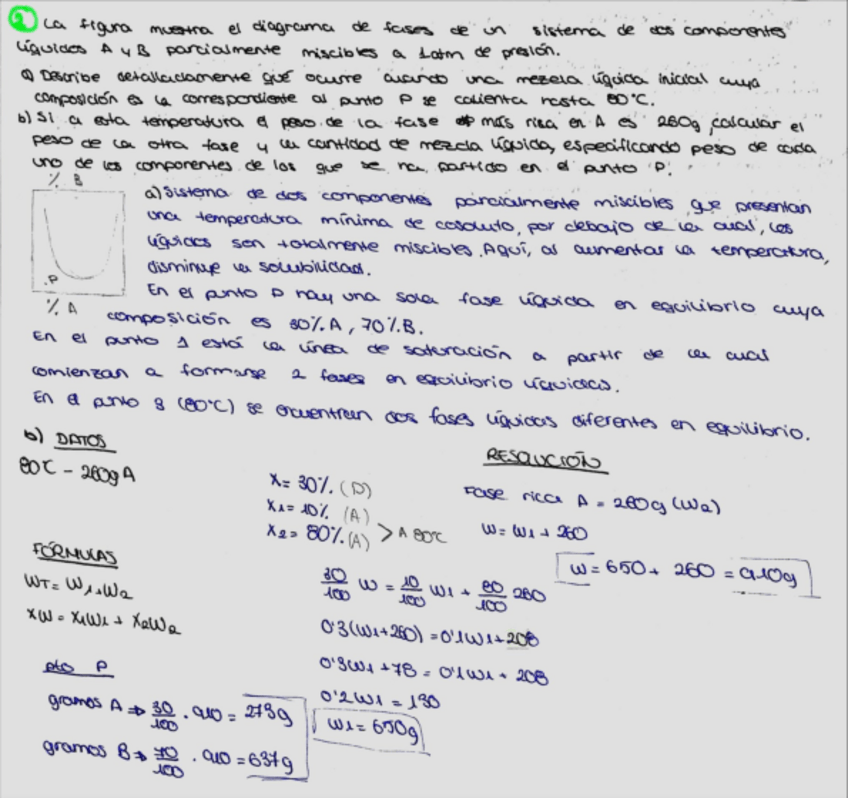 2 La figura muestra el diagrama de fases de un sistema de dos componentes
líquidos A y B parcialmente miscibles a 1atm de presión.
a) Describe detalladamente qué ocurre cuando una mezcla líquida inicial cuya
composición es la correspondiente al punto P se calienta hasta 80°C.
b) Si a esta temperatura el peso de la fase más rica en A es 260g, calcular el
peso de la otra fase y la cantidad de mezcla líquida, especificando peso de cada
uno de los componentes de los que se ha partido en el punto P.
% B
.P
% A
a) Sistema de dos componentes parcialmente miscibles que presentan
una temperatura mínima de cosoluto, por debajo de la cual, los
líquidos son totalmente miscibles. Aquí, al aumentar la temperatura,
disminuye la solubilidad.
En el punto P hay una sola fase líquida en equilibrio cuya
composición es 30% A, 70% B.
En el punto 1 está la línea de saturación a partir de la cual
comienzan a formarse 2 fases en equilibrio líquidas.
En el punto 3 (80°C) se encuentran dos fases líquidas diferentes en equilibrio.
b) DATOS
80°C - 260g A
X = 30% (P)
X1 = 10% (A)
X2 = 80% (A) > A 80°C
FÓRMULAS
WT = W1 + W2
XW = X1W1 + X2W2
RESOLUCIÓN
Fase rica A = 260g (W2)
W = W1 + 260
30/100 W = 10/100 W1 + 80/100 260
0'3(W1+260) = 0'1W1 + 208
0'3W1 + 78 = 0'1W1 + 208
0'2W1 = 130
W1 = 650g
W = 650 + 260 = 910g
pto P
gramos A → 30/100 . 910 = 273g
gramos B → 70/100 . 910 = 637g